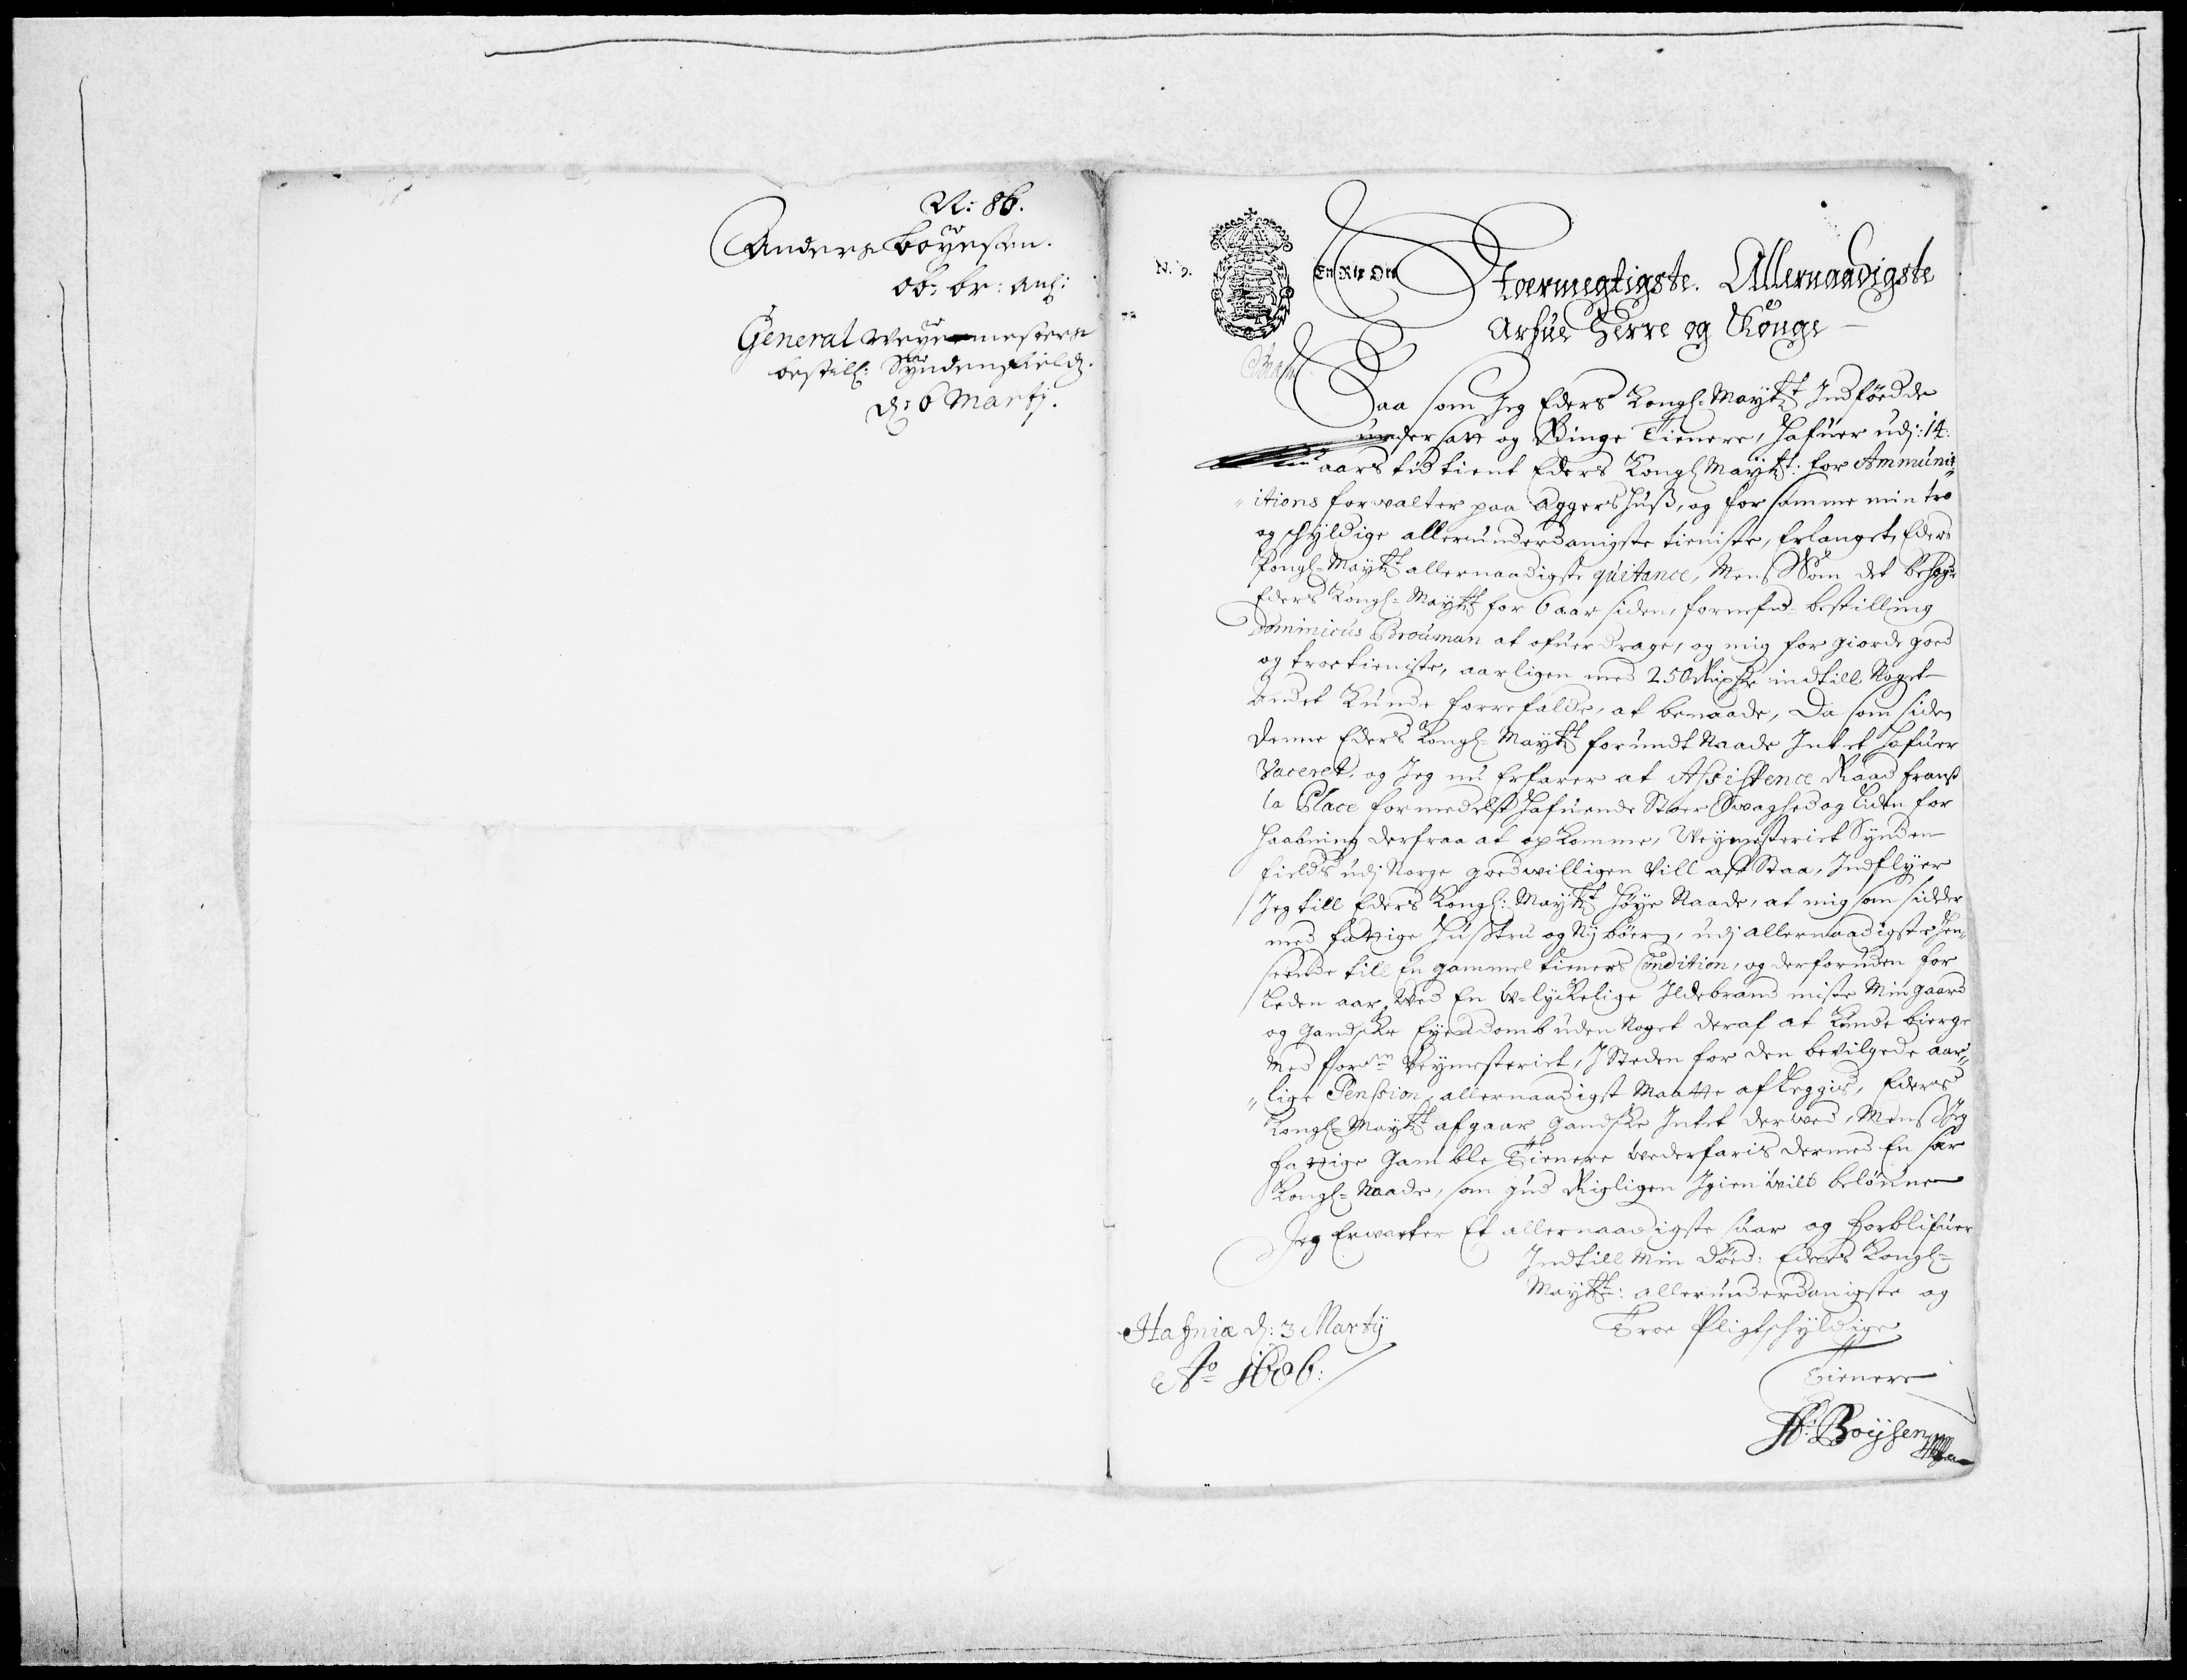 N: 86.
Anders Boÿesen.
ob: br: anl:
General Weyemesters
bestill: Syndenfields.
d: 6 Martÿ.
N. 9.
En Rix Ort
Stoermegtigste. Allernaadigste
Arfue Herre og Konge
Saa som Jeg Eders Kongl: Maytt Indföedde
undersatt og Ringe Tienere, hafuer udj: 14
aars tid tient Eders Kongl Maytt: for Ammuni
itions forwalter paa Aggershuß, og for samme min tro
og schyldige allerunderdanigste tieniste, Erlanget Eders
Kongl= Maytts allernaadigste quitance, Mens Som det behagede
Eders Kongl= Maytt for 6 aar siden, fornefnd bestilling
Dominicus Brouman at ofuerdrage, og mig for giorde goed
og troe tieniste, aarligen med 250 Rixdr indtill Noget
andet Kunde forrefalde, at benaade, Da som siden
denne Eders Kongl= Maytts forundt Naade Intet hafuer
Vaceret, og Jeg nu Erfarer at Assistence Raad Frantz
la Place formedelst hafuende Stoer Swaghed og liden for
haabning derfraa at opkomme, Weymesteriet Synden
fields udj Norge goedwilligen Vill aff Staa, Indflyer
Jeg till Eders Kongl: Maytts höye Naade, at mig som sidder
med fattige Hustru og Nj böern, udj allernaadigste hen„
seende till En gammel tieners Condition, og derforuden for
leden aar, Wed En W=lyckelige Ildebrand miste Min gaard
og gandske Eyendomb uden Noget deraf at Kunde bierge
Med forsn Veymesteriet, J Steden for den bevilgede aar„
„lige Pension, allernaadigst Maatte aflegges, Eders
Kongl= Maytt afgaar gandske Intet derved, Mens Jeg
fattige Gamble Tienere wederfaris dermed En stoer
Kongl= Naade, som gud Rigligen Igien wilt belönne
Jeg Erwarter Et allernaadigste suar og forblifuer
Indtill Min Död: Eders Kongl=
Maytts: allerunderdanigste og
Troe Pligtschyldige
Tienere
A: Boÿsen
Hafniæ d: 3 Martÿ
Ao 1686: